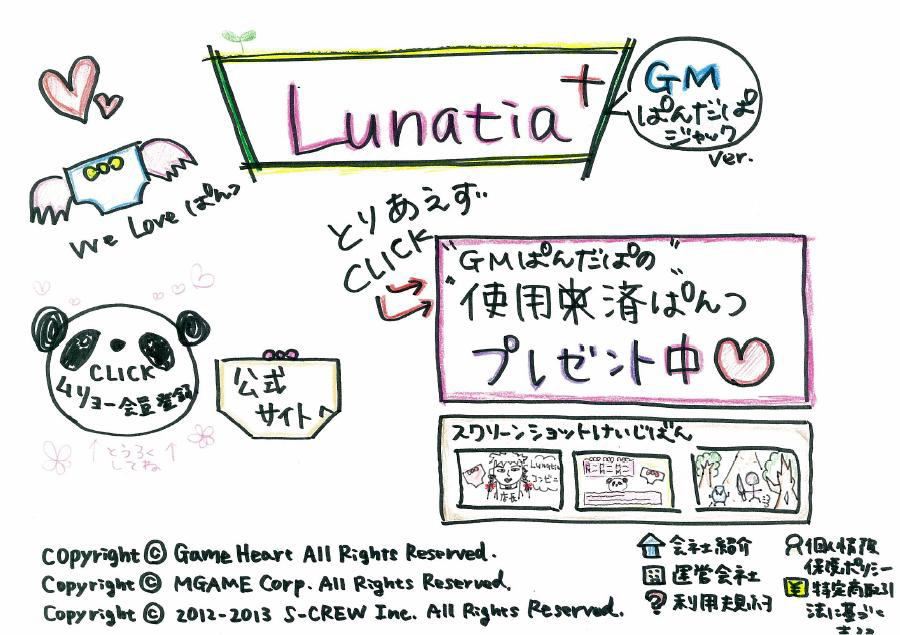 Lunatia+
GM
ぱんだぱ
ジャック
ver.
We Love ぱんつ
とりあえず
CLICK
"GMぱんだぱの"
使用済ぱんつ
プレゼント中
CLICK
ムリョー会員登録
↑とうろく↑
してね
公式
サイトへ
スクリーンショットけいじばん
Lunatia
コンビニ
店長
Copyright © Game Heart All Rights Reserved.
Copyright © MGAME Corp. All Rights Reserved.
Copyright © 2012-2013 S-CREW Inc. All Rights Reserved.
会社紹介
運営会社
利用規約
個人情報
保護ポリシー
特定商取引
法に基づく